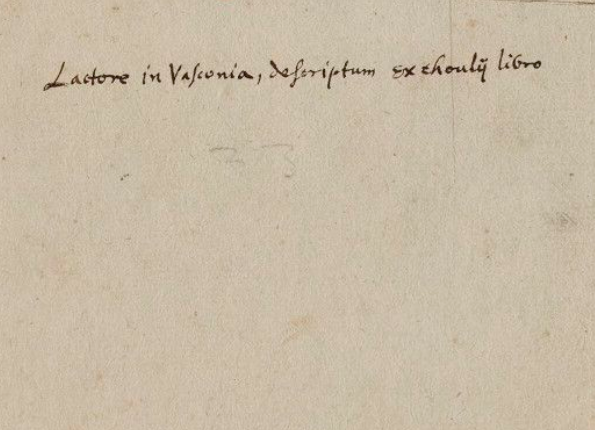 Lactore in Vasconia, descriptum ex choulij libro